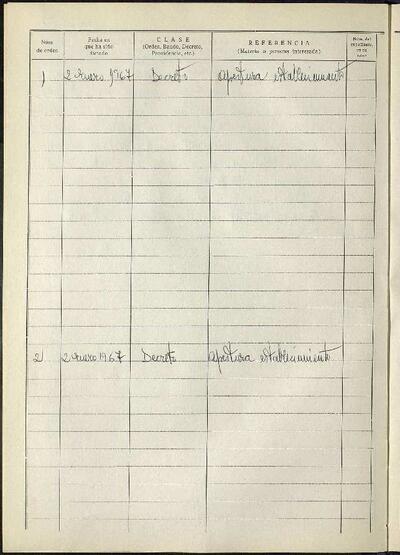 Núm. de orden
Fecha en que ha sido dictado
CLASE
(Orden, Bando, Decreto, Providencia, etc.)
REFERENCIA
(Materia o persona interesada)
1 2 Enero 1967 Decreto apertura establecimiento
2 2 Enero 1967 Decreto apertura establecimiento